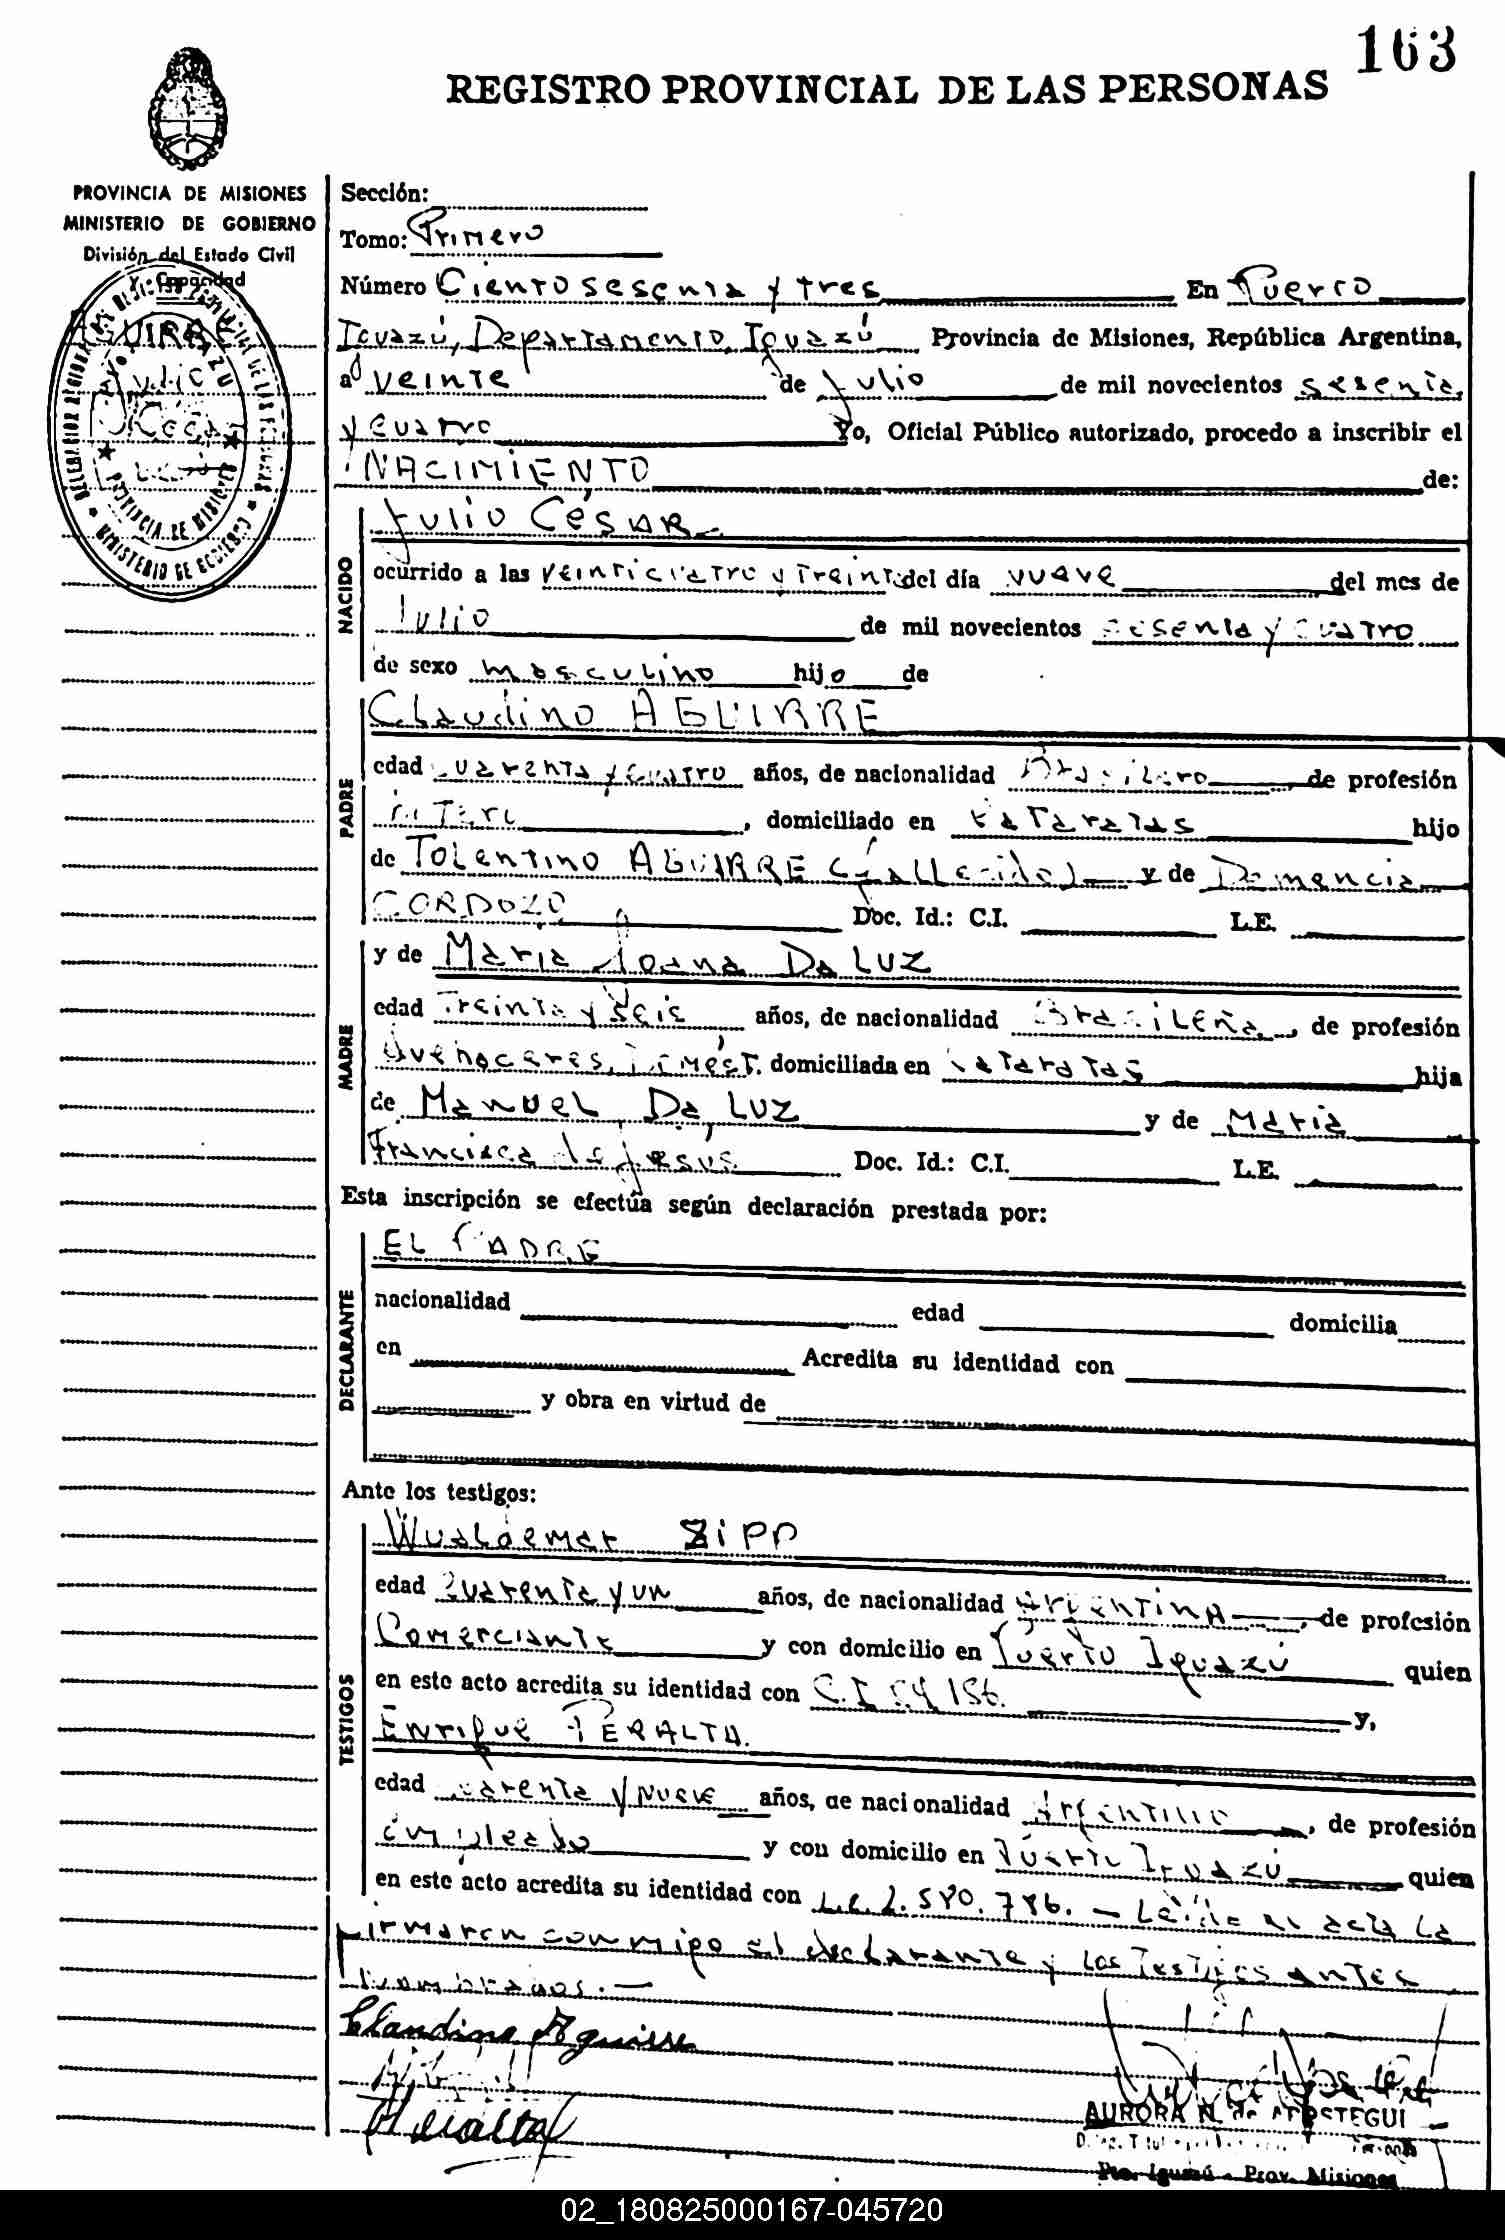 163
REGISTRO PROVINCIAL DE LAS PERSONAS
PROVINCIA DE MISIONES
MINISTERIO DE GOBIERNO
División del Estado Civil
y Capacidad
AGUIRRE
Julio
César
Sección:
Tomo: Primero
Número Ciento sesenta y tres En Puerto
Iguazú, Departamento, Iguazú Provincia de Misiones, República Argentina,
a veinte de Julio de mil novecientos sesenta
y cuatro Yo, Oficial Público autorizado, procedo a inscribir el
NACIMIENTO de:
NACIDO
Julio César
ocurrido a las veinticuatro y treinta del día nueve del mes de
Julio de mil novecientos sesenta y cuatro
de sexo masculino hijo de
PADRE
Claudino AGUIRRE
edad cuarenta y cuatro años, de nacionalidad Brasilero de profesión
, domiciliado en Cataratas hijo
de Tolentino AGUIRRE (fallecido) y de Demencia
CORDOZO Doc. Id.: C.I. L.E.
MADRE
y de Maria Joana Da LUZ
edad Treinta y Seis años, de nacionalidad Brasileña, de profesión
Quehaceres Domést. domiciliada en Cataratas hija
de Manuel Da LUZ y de Maria
Francisca de Jesús Doc. Id.: C.I. L.E.
Esta inscripción se efectúa según declaración prestada por:
DECLARANTE
EL PADRE
nacionalidad edad domicilia
en Acredita su identidad con
y obra en virtud de
Ante los testigos:
TESTIGOS
Wualdemar ZIPP
edad Cuarenta y un años, de nacionalidad Argentina, de profesión
Comerciante y con domicilio en Puerto Iguazú quien
en este acto acredita su identidad con C.I 54.156. y,
Enrique PERALTA.
edad cuarenta y nueve años, de nacionalidad Argentino, de profesión
empleado y con domicilio en Puerto Iguazú quien
en este acto acredita su identidad con L.E. 2.580.786. — Leída el acta la
firmaron conmigo el declarante y los Testigos antes
nombrados. —
Claudino Aguirre
Peralta
AURORA N. de ATOSTEGUI
Pto. Iguazú - Prov. Misiones
02_180825000167-045720